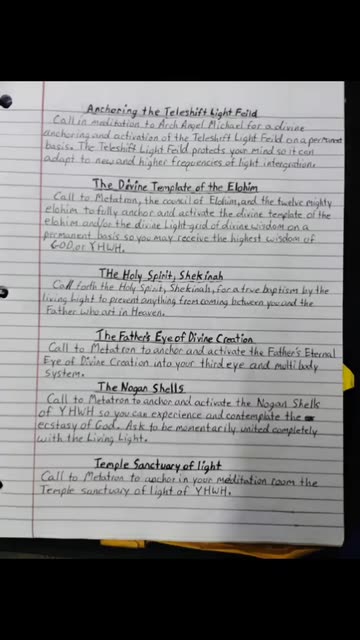 Anchoring the Teleshift Light Feild
Call in meditation to Arch Angel Michael for a divine
anchoring and activation of the Teleshift Light Feild on a permanent
basis. The Teleshift Light Feild protects your mind so it can
adapt to new and higher frequencies of light intergration.
The Divine Template of the Elohim
Call to Metatron, the council of Elohim, and the twelve mighty
elohim to fully anchor and activate the divine template of the
elohim and/or the divine Light-grid of divine wisdom on a
permanent basis so you may receive the highest wisdom of
GOD, or YHWH.
THe Holy Spirit, Shekinah
Call forth the Holy Spirit, Shekinah, for a true baptism by the
living light to prevent anything from coming between you and the
Father who art in Heaven.
The Father's Eye of Divine Creation
Call to Metatron to anchor and activate the Father's Eternal
Eye of Divine Creation into your third eye and multi body
system.
The Nogan Shells
Call to Metatron to anchor and activate the Nogan Shells
of YHWH so you can experience and contemplate the
ecstasy of God. Ask to be momentarily united completely
with the Living Light.
Temple Sanctuary of light
Call to Metatron to anchor in your meditation room the
Temple sanctuary of light of YHWH.